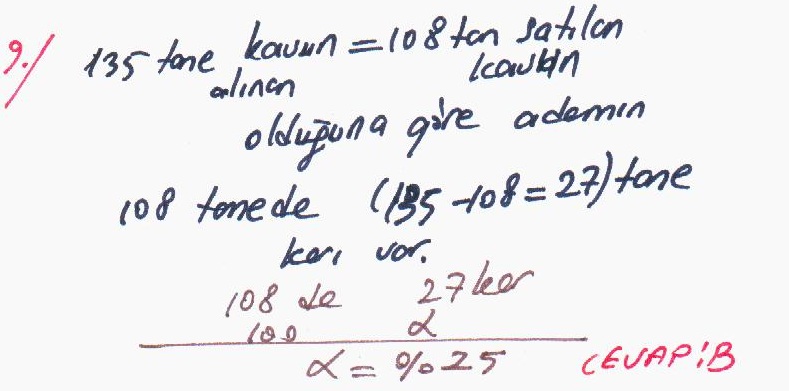 9./ 135 tane kavun = 108 tan satılan
alınan kavun
olduğuna göre ademın
108 tanede (135-108=27) tane
karı var.
108 de 27 kar
100 α
α = %25 CEVAP:B